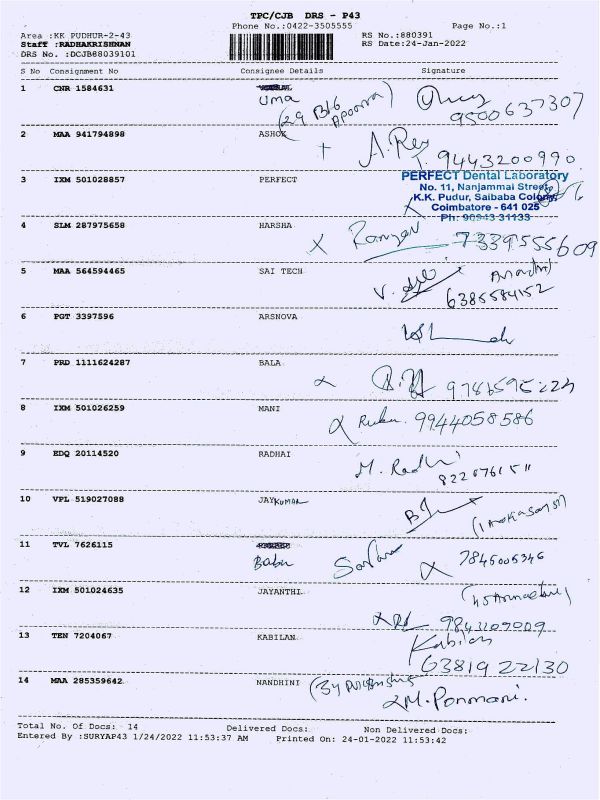 TPC/CJB DRS - P43
Phone No.:0422-3505555
Page No.:1
Area :KK PUDHUR-2-43
RS No.:880391
Staff :RADHAKRISHNAN
RS Date:24-Jan-2022
DRS No. :DCJB88039101
S No Consignment No Consignee Details Signature
1 CNR 1584631
Uma
9500637307
2 MAA 941794898 ASHOK
9443200990
3 IXM 501028857 PERFECT
PERFECT Dental Laboratory
No. 11, Nanjammai Street,
K.K. Pudur, Saibaba Colony,
Coimbatore - 641 025
Ph: 90943 31133
4 SLM 287975658 HARSHA
7339555609
5 MAA 564594465 SAI TECH
6385584152
6 PGT 3397596 ARSNOVA
7 PRD 1111624287 BALA
8 IXM 501026259 MANI
9944058586
9 EDQ 20114520 RADHAI
M. Radhi
10 VPL 519027088 JAYKUMAR
11 TVL 7626115
Babu
7845005346
12 IXM 501024635 JAYANTHI
13 TEN 7204067 KABILAN
Kabilan
6381922130
14 MAA 285359642 NANDHINI
M. Ponmani.
Total No. Of Docs: 14 Delivered Docs: Non Delivered Docs:
Entered By :SURYAP43 1/24/2022 11:53:37 AM Printed On: 24-01-2022 11:53:42